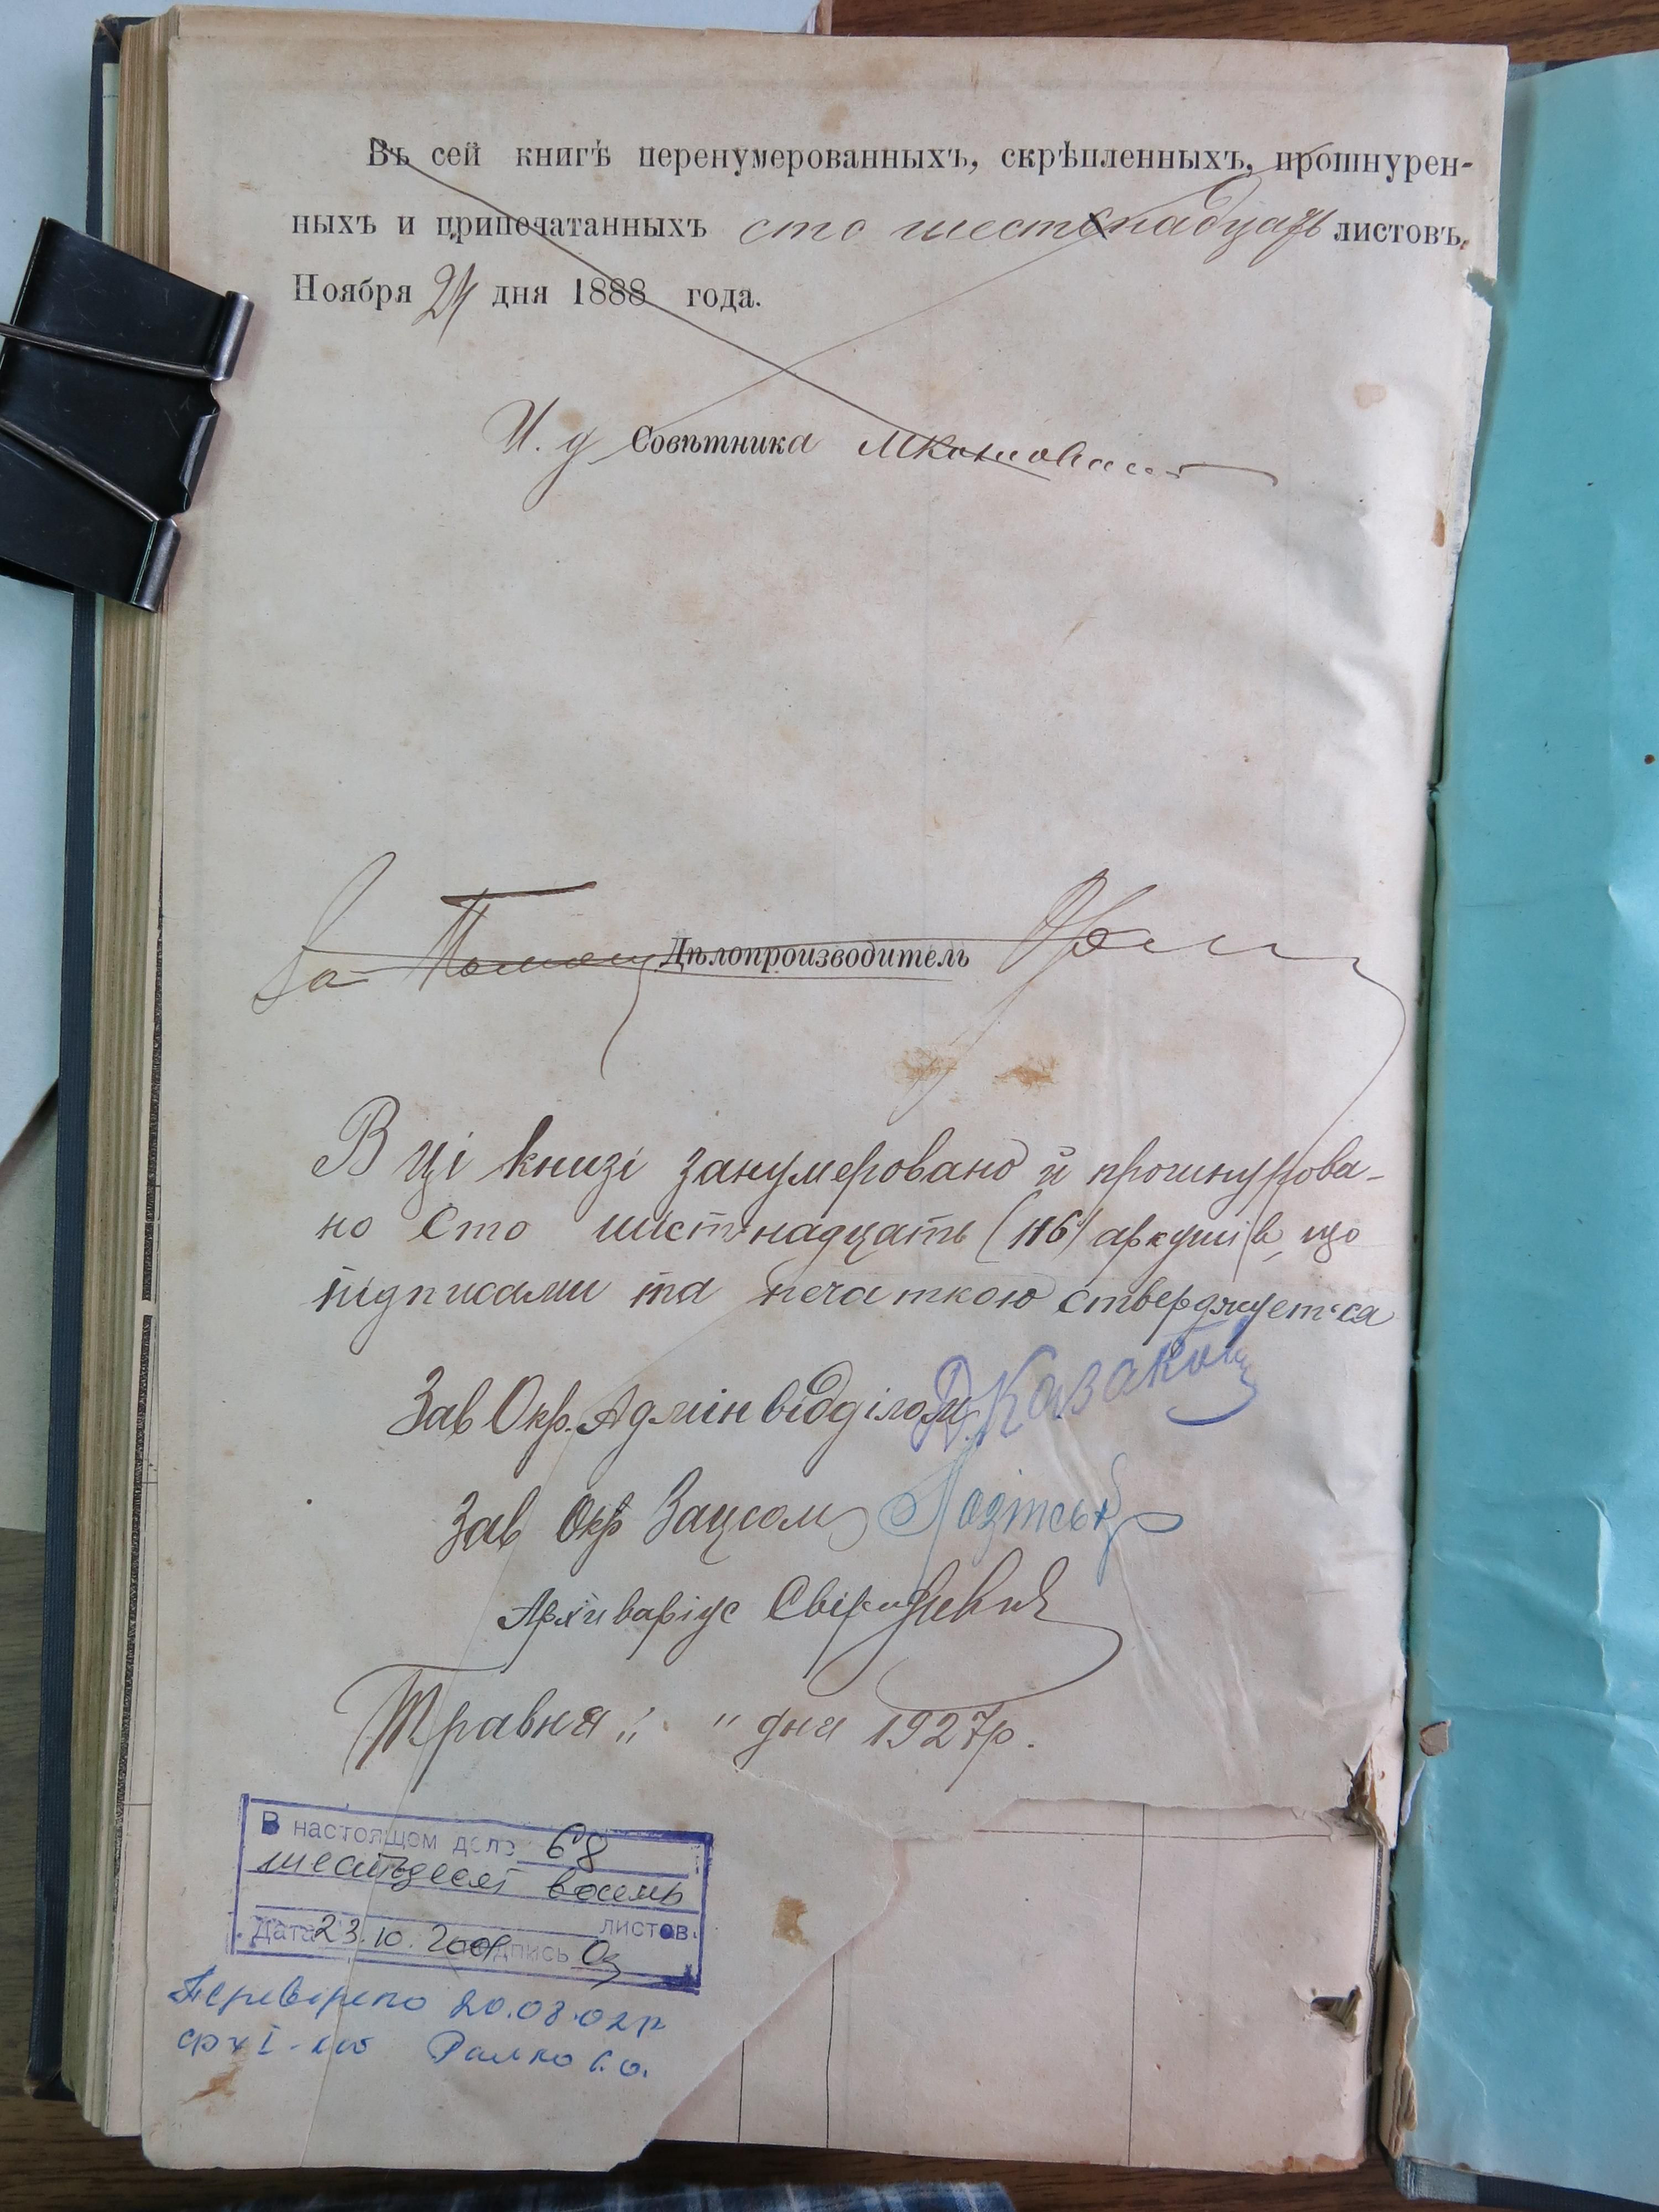 Въ сей книгѣ перенумерованныхъ, скрѣпленныхъ, прошнурен-
ныхъ и припечатанныхъ сто шестнадцать листовъ.
Ноября 24 дня 1888 года.
И. д Совѣтника
За Дѣлопроизводитель
В ці книзі занумеровано й прошнурова-
но сто шістнадцать (116) аркушів, що
підписами та печаткою стверджується
Зав Окр. Адмінвідділом Казаков
Зав Окр Загсом
Архіваріус
Травня " " дня 1927р.
В настоящем деле 68
шестьдесят восемь
листов.
Дата 23.10. подпись
Перевірено 20.03.02р